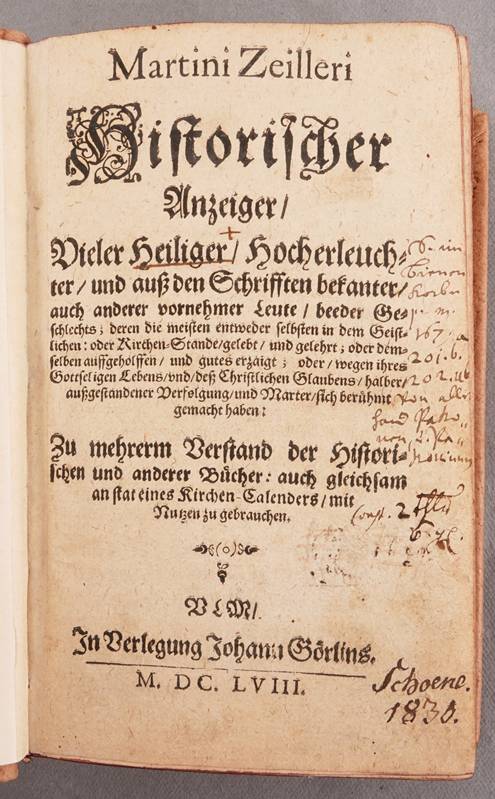 Martini Zeilleri
Historischer
Anzeiger/
Vieler Heiliger/ Hocherleuch-
ter/ und auß den Schrifften bekanter/
auch anderer vornehmer Leute/ beeder Ge-
schlechts; deren die meisten entweder selbsten in dem Geist-
lichen: oder Kirchen-Stande/gelebt/ und gelehrt; oder dem-
selben auffgeholffen/ und gutes erzaigt; oder/ wegen ihres
Gottseligen Lebens/vnd/deß Christlichen Glaubens/ halber/
außgestandener Verfolgung/und Marter/sich berühmt
gemacht haben:
Zu mehrerm Verstand der Histori-
schen und anderer Bücher: auch gleichsam
an stat eines Kirchen-Calenders/ mit
Nutzen zu gebrauchen.
(o)
VLM/
In Verlegung Johann Görlins.
M. DC. LVIII.
S. im
167.
201. b.
202.
von aller
hand
Schoene.
1830.